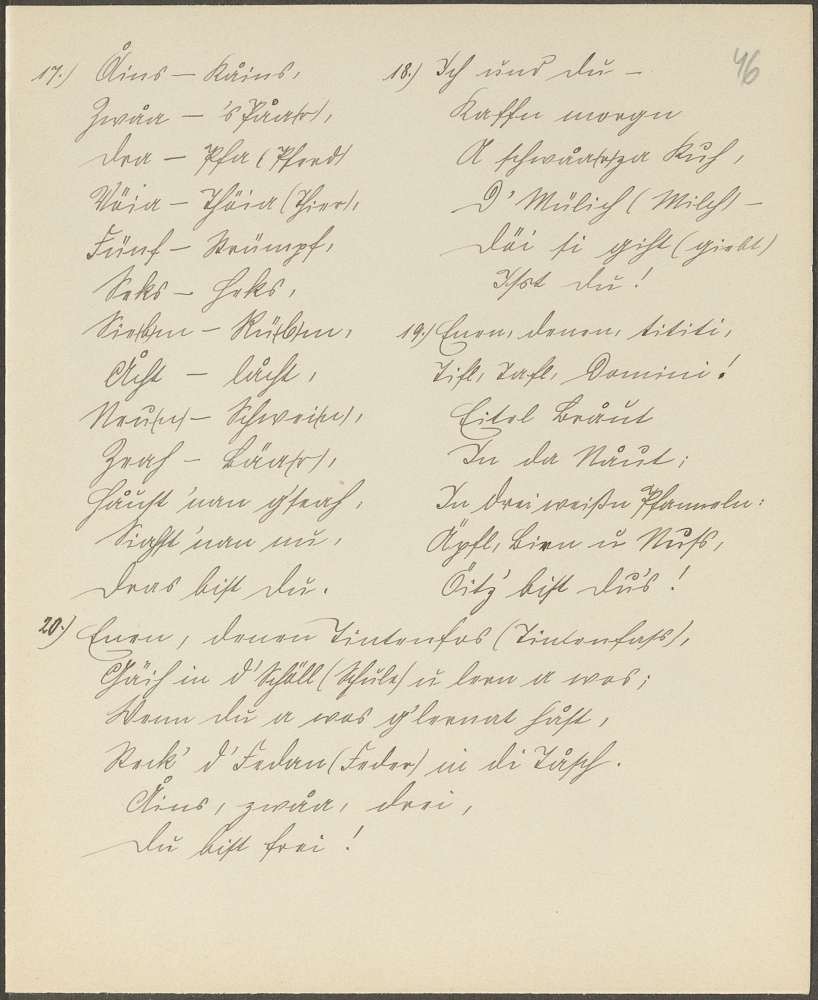 46
17.) Åins – Kåins,
Zwåa – 's Påa(r),
Drea – Pfea (Pferd)
Vöia – Thöia (Thier),
Fünf – Strümpf,
Seks – Heks,
Sie(b)m – Rü(b)m,
Åcht – låcht,
Neu(n) – Schwei(n),
Zeah – Bäa(r),
Håust 'nan g'seah,
Siahst 'nan nu,
Deas bist du.
18.) Ich und du –
Kaffn morgn
A schwåa(r)za Kuh,
D' Mülich (Milch) –
Döi si giht (giebt)
Isst du!
19.) Enen, denen, tititi,
Tifl, Tafl, Domini!
Eitel Bråut
In da Nåut;
In drei weißn Pfanneln:
Äpfl, Birn u Nuss,
Öitz' bist du's!
20.) Enen, denen Tintenfos (Tintenfass),
Gäih in d' Schöll (Schule) u lern a wos;
Wenn du a wos g'lernat håst,
Steck' d' Fedan (Feder) in di Tåsch.
Åins, zwåa, drei,
Du bist frei!